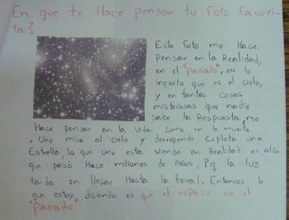 En que te Hace pensar tu foto favori-
ta?
Esta foto me Hace
Pensar en la Realidad,
en el "Pasado", en lo
que es el cielo,
y en tantas cosas
misteriosas que nadie
sabe la Respuesta, me
Hace pensar en la vida, como en la muerte
. Uno mira al cielo y derrepende Explota una
Estrella, lo que uno esta viendo en Realidad es algo
que pasó Hace millones de Años, Pq la luz
tarda en llegar Hasta la tierra!. Entonces lo
que estoy diciendo es que el espacio es el
"Pasado"